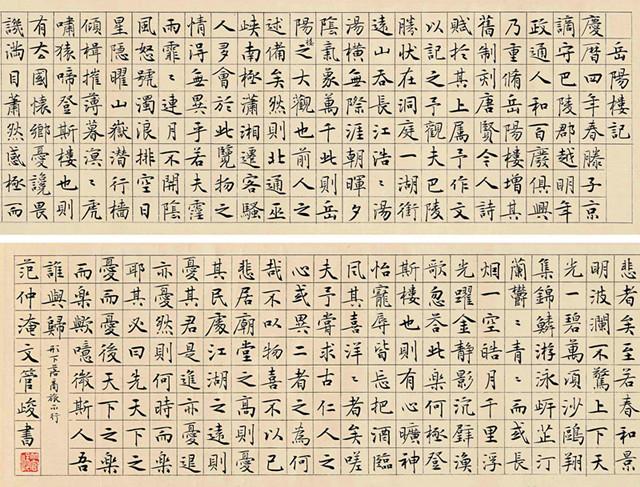 岳陽樓記
慶曆四年春滕子京
謫守巴陵郡越明年
政通人和百廢俱興
乃重脩岳陽樓增其
舊制刻唐賢今人詩
賦於其上属予作文
以記之予觀夫巴陵
勝狀在洞庭一湖銜
遠山吞長江浩〻湯
湯橫無際涯朝暉夕
陰氣象萬千此則岳
陽樓之大觀也前人之
述備矣然則北通巫
峽南極瀟湘遷客騷
人多會於此覽物之
情得無異乎若夫霪
雨霏〻連月不開陰
風怒號濁浪排空日
星隱曜山嶽潛行檣
傾楫摧薄暮溟〻虎
嘯猿啼登斯樓也則
有去國懷鄉憂讒畏
譏滿目蕭然感極而
悲者矣至若春和景
明波瀾不驚上下天
光一碧萬頃沙鷗翔
集錦鱗游泳岸芷汀
蘭鬱〻青〻而或長
烟一空皓月千里浮
光躍金靜影沉璧漁
歌忽答此樂何極登
斯樓也則有心曠神
怡寵辱皆忘把酒臨
風其喜洋〻者矣嗟
夫予嘗求古仁人之
心或異二者之為何
哉不以物喜不以己
悲居廟堂之高則憂
其民處江湖之遠則
憂其君是進亦憂退
亦憂然則何時而樂
耶其必曰先天下之
憂而憂後天下之樂
而樂歟噫微斯人吾
誰與歸 形下落商旅不行
范仲淹文管峻書